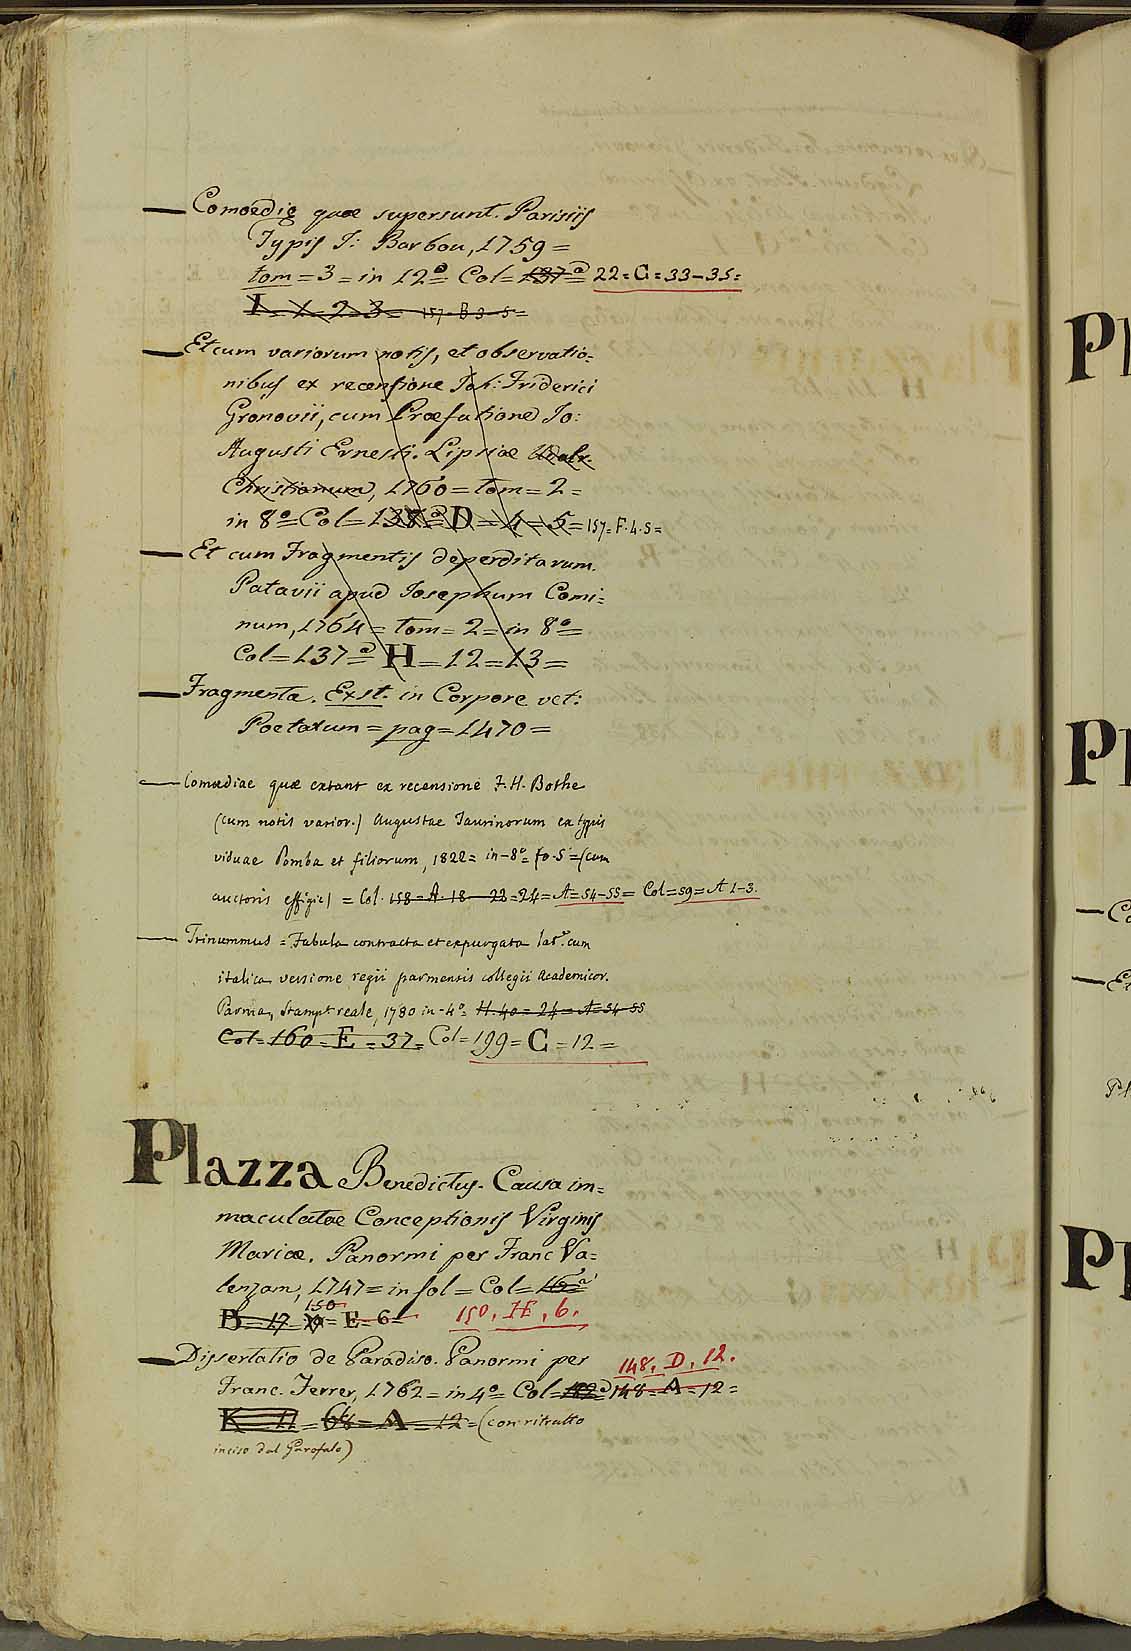 — Comoedię quæ supersunt. Parisiis
Typis J: Barbou, 1759 =
tom = 3 = in 12º = Col = 137ª = 22 = C = 33 – 35 =
I = 1 = 2 = 3 = 157 = B 3 - 5 =
— Et cum variorum notis, et observatio=
nibus ex recensione Joh: Friderici
Gronovii, cum Præfatione Jo:
Augusti Ernesti. Lipsiæ
Christianum, 1760 = tom = 2 =
in 8º = Col = 138ª = D = 4 = 5 = 157 = F. 4. 5 =
— Et cum Fragmentis deperditarum.
Patavii apud Josephum Comi=
num, 1764 = tom = 2 = in 8º =
Col = 137ª = H = 12 = 13 =
— Fragmenta. Exst. in Corpore vet:
Poetarum = pag = 1470 =
— Comœdiae quæ extant ex recensione F. H. Bothe
(cum notis varior.) Augustae Taurinorum ex typis
viduae Pomba et filiorum, 1822 = in - 8º = to. 5 = (cum
auctoris effigie) = Col. 158 = A. 18 - 22 = 24 = A = 54 - 55 = Col = 59 = A 1 - 3.
— Trinummus = Fabula contracta et expurgata lat. cum
italica versione regii parmensis collegii Academicor.
Parma, Stamp. reale, 1780 in - 4º = H. 40 = 24 = A = 54 55
Col = 160 = E = 37 = Col = 199 = C = 12 =
Plazza Benedictus. Causa im=
maculatae Conceptionis Virginis
Mariæ. Panormi per Franc Va=
lenzam, 1747 = in fol = Col = 16ª =
150
B = 17 = = E = 6 = 150, H, 6.
— Dissertatio de Paradiso. Panormi per
148. D. 12.
Franc. Ferrer, 1762 = in 4º = Col = 182ª 148 = A = 12 =
K = 11 = 68 = A = 12 = (con ritratto
inciso dal Garofalo)
Pl
Pl
Pl
— Co